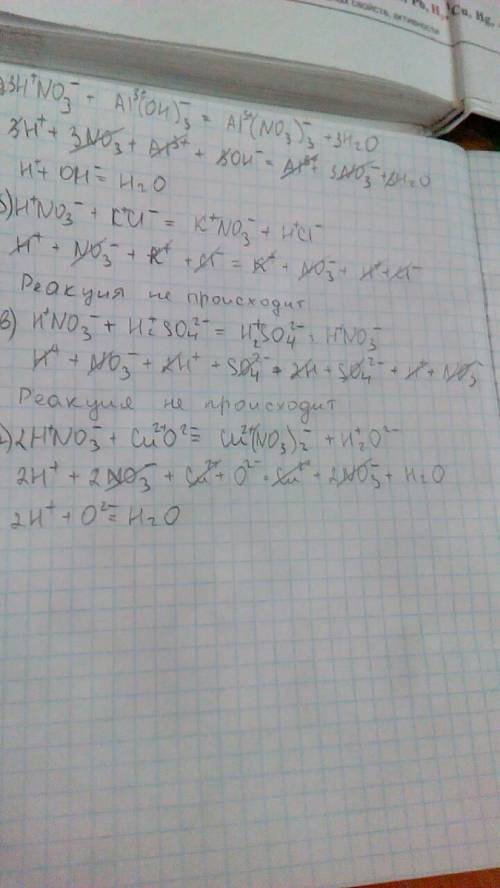 Pb, H₂, Cu, Hg,
свойств, активности
3H⁺NO₃⁻ + Al³⁺(OH)₃⁻ = Al³⁺(NO₃)₃⁻ + 3H₂O
3H⁺ + 3NO₃⁻ + Al³⁺ + 3OH⁻ = Al³⁺ + 3NO₃⁻ + 3H₂O
H⁺ + OH⁻ = H₂O
б) H⁺NO₃⁻ + K⁺Cl⁻ = K⁺NO₃⁻ + H⁺Cl⁻
H⁺ + NO₃⁻ + K⁺ + Cl⁻ = K⁺ + NO₃⁻ + H⁺ + Cl⁻
Реакция не происходит
в) H⁺NO₃⁻ + H₂⁺SO₄²⁻ = H₂⁺SO₄²⁻ + H⁺NO₃⁻
H⁺ + NO₃⁻ + 2H⁺ + SO₄²⁻ = 2H + SO₄²⁻ + H⁺ + NO₃⁻
Реакция не происходит
2H⁺NO₃⁻ + Cu²⁺O²⁻ = Cu²⁺(NO₃)₂⁻ + H₂⁺O²⁻
2H⁺ + 2NO₃⁻ + Cu²⁺ + O²⁻ = Cu²⁺ + 2NO₃⁻ + H₂O
2H⁺ + O²⁻ = H₂O